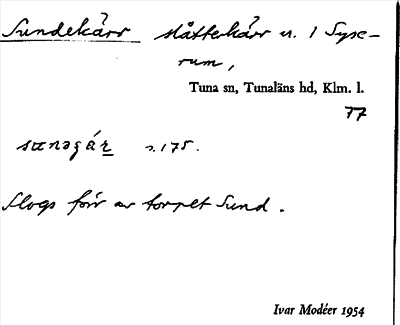 Sundekärr slåtterkärr n. 1 Syse-
rum,
Tuna sn, Tunaläns hd, Klm. l.
77
s. 175.
Slogs förr av torpet Sund.
Ivar Modéer 1954